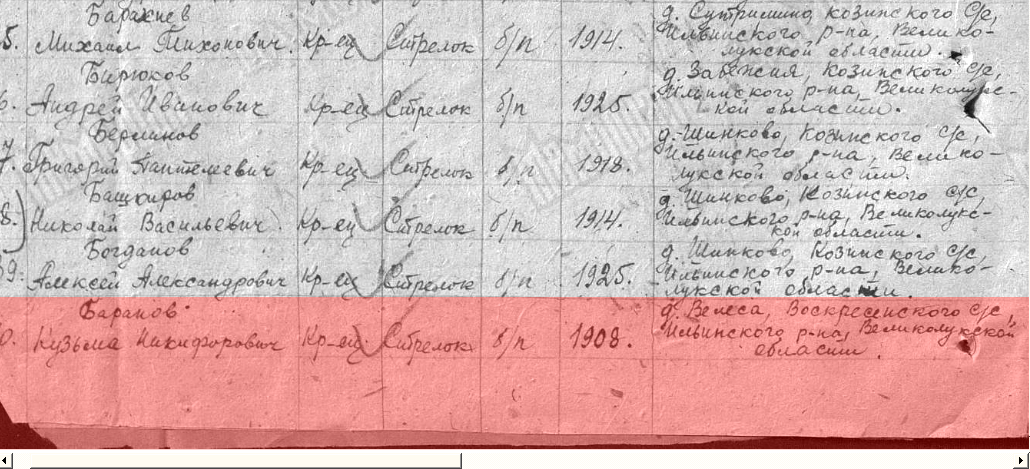 Баракиев
5. Михаил Тихонович. Кр-ец Стрелок б/п 1914. д. Сутримино, Козинского с/с, Ильинского р-на, Велико-
лукской области.
Бирюков
6. Андрей Иванович Кр-ец Стрелок б/п 1925. Козинского с/с, Ильинского р-на, Великолукс-
кой области.
Берлинов
7. Григорий Пантелеевич Кр-ец Стрелок б/п 1918. д. Шинково, Козинского с/с, Ильинского р-на, Велико-
лукской области.
Башкиров
8. Николай Васильевич Кр-ец Стрелок б/п 1914. д. Шинково, Козинского с/с, Ильинского р-на, Великолукс-
кой области.
Богданов
9. Алексей Александрович Кр-ец Стрелок б/п 1925. д. Шинково, Козинского с/с, Ильинского р-на, Велико-
лукской области.
Баранов
0. Кузьма Никифорович Кр-ец Стрелок б/п 1908. д. Велеса, Воскресенского с/с, Ильинского р-на, Великолукской
области.